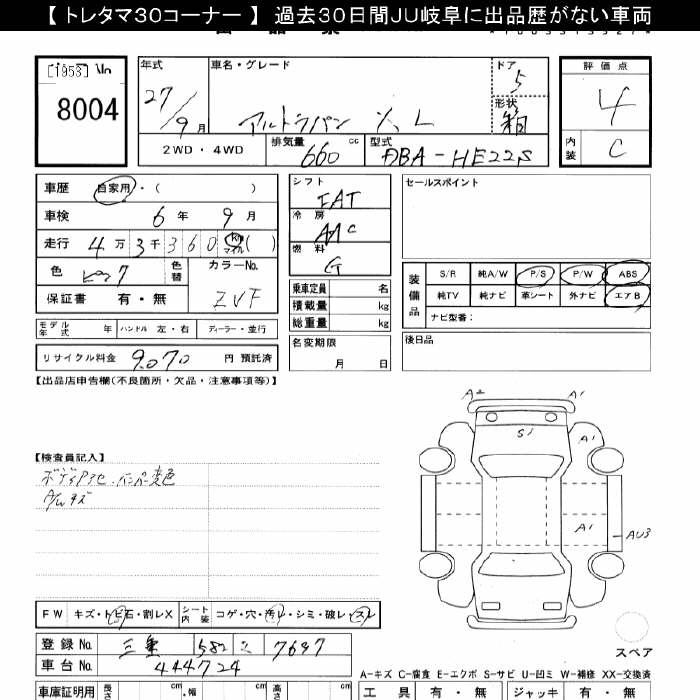 【 トレタマ３０コーナー 】 過去３０日間ＪＵ岐阜に出品歴がない車両
[1958] No
8004
年式 車名・グレード ドア 5 評価点
27/9月 アルトラパン X L 形状 箱 4
2WD・4WD 排気量 660 cc 型式 DBA-HE22S 内装 C
車歴 自家用・( )
車検 6年 9月
走行 4万3千360 km マイル ( )
色 ピンク 色替 カラーNo. ZVF
保証書 有・無
モデル年式 年 ハンドル 左・右 ディーラー・並行
リサイクル料金 9,070 円 預託済
シフト IAT
冷房 AAC
燃料 G
乗車定員 名
積載量 kg
総重量 kg
名変期限 月 日
セールスポイント
装備品 S/R 純A/W P/S P/W ABS
純TV 純ナビ 革シート 外ナビ エアB
ナビ型番：
後日品
【出品店申告欄(不良箇所・欠品・注意事項等)】
【検査員記入】
A2 A1
S1 A1
A1 AU3
FW キズ・トビ石・割レX シート内装 コゲ・穴・汚レ・シミ・破レ・スレ
登録No. 三重 582 7697
車台No. 444724
スペア
A－キズ C－腐食 E－エクボ S－サビ U－凹ミ W－補修 XX－交換済
車庫証明用 長さ cm 幅 cm 高さ cm 工具 有・無 ジャッキ 有・無